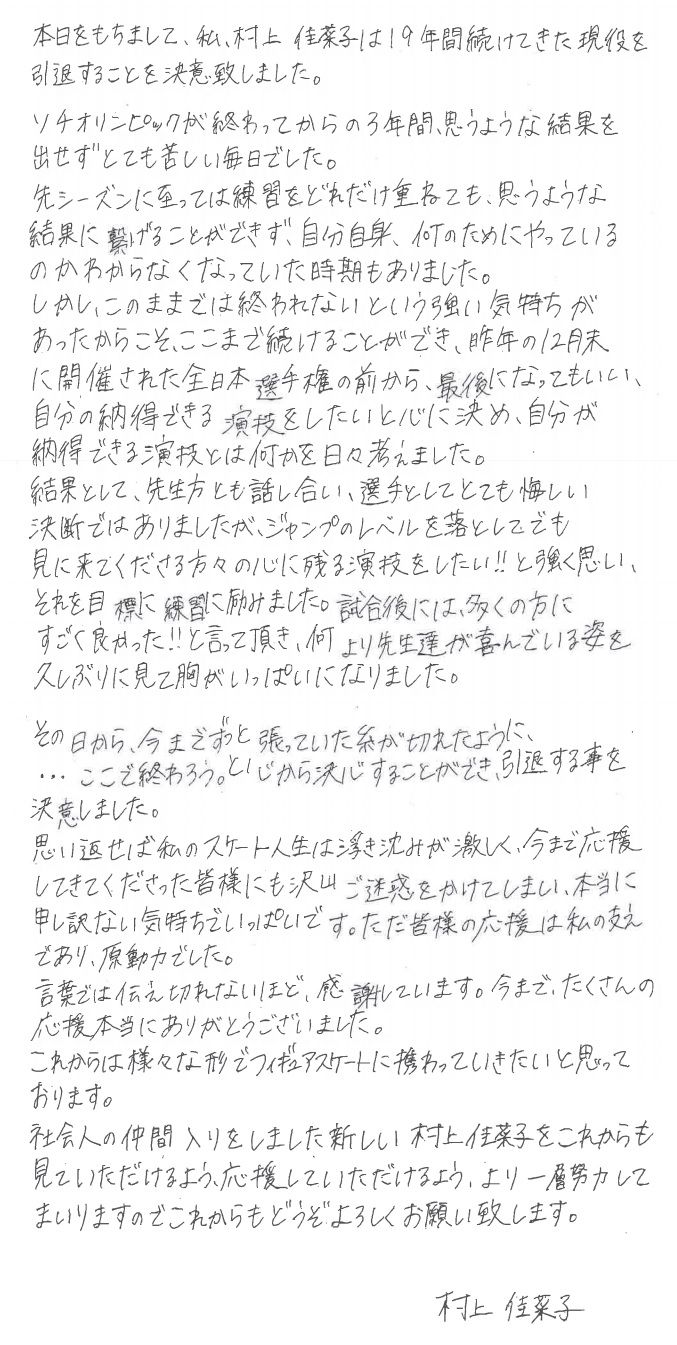 本日をもちまして、私、村上 佳菜子は19年間続けてきた現役を
引退することを決意致しました。
ソチオリンピックが終わってからの3年間、思うような結果を
出せずとても苦しい毎日でした。
先シーズンに至っては練習をどれだけ重ねても、思うような
結果に繋げることができず、自分自身、何のためにやっている
のかわからなくなっていた時期もありました。
しかし、このままでは終われないという強い気持ちが
あったからこそ、ここまで続けることができ、昨年の12月末
に開催された全日本選手権の前から、最後になってもいい、
自分の納得できる演技をしたいと心に決め、自分が
納得できる演技とは何かを日々考えました。
結果として、先生方とも話し合い、選手としてとても悔しい
決断ではありましたが、ジャンプのレベルを落としてでも
見に来てくださる方々の心に残る演技をしたい!!と強く思い、
それを目標に練習に励みました。試合後には、多くの方に
すごく良かった!!と言って頂き、何より先生達が喜んでいる姿を
久しぶりに見て胸がいっぱいになりました。
その日から、今までずっと張っていた糸が切れたように、
…ここで終わろう。と心から決心することができ、引退する事を
決意しました。
思い返せば私のスケート人生は浮き沈みが激しく、今まで応援
してきてくださった皆様にも沢山ご迷惑をかけてしまい、本当に
申し訳ない気持ちでいっぱいです。ただ皆様の応援は私の支え
であり、原動力でした。
言葉では伝え切れないほど、感謝しています。今まで、たくさんの
応援本当にありがとうございました。
これからは様々な形でフィギュアスケートに携わっていきたいと思って
おります。
社会人の仲間入りをしました新しい村上佳菜子をこれからも
見ていただけるよう、応援していただけるよう、より一層努力して
まいりますのでこれからもどうぞよろしくお願い致します。
村上 佳菜子